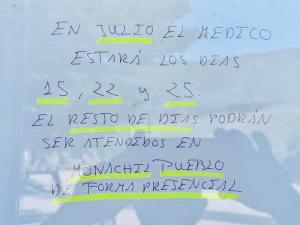 EN JULIO EL MEDICO
ESTARÁ LOS DIAS
15, 22 y 25.
EL RESTO DE DIAS PODRÁN
SER ATENDIDOS EN
MONACHIL PUEBLO
DE FORMA PRESENCIAL